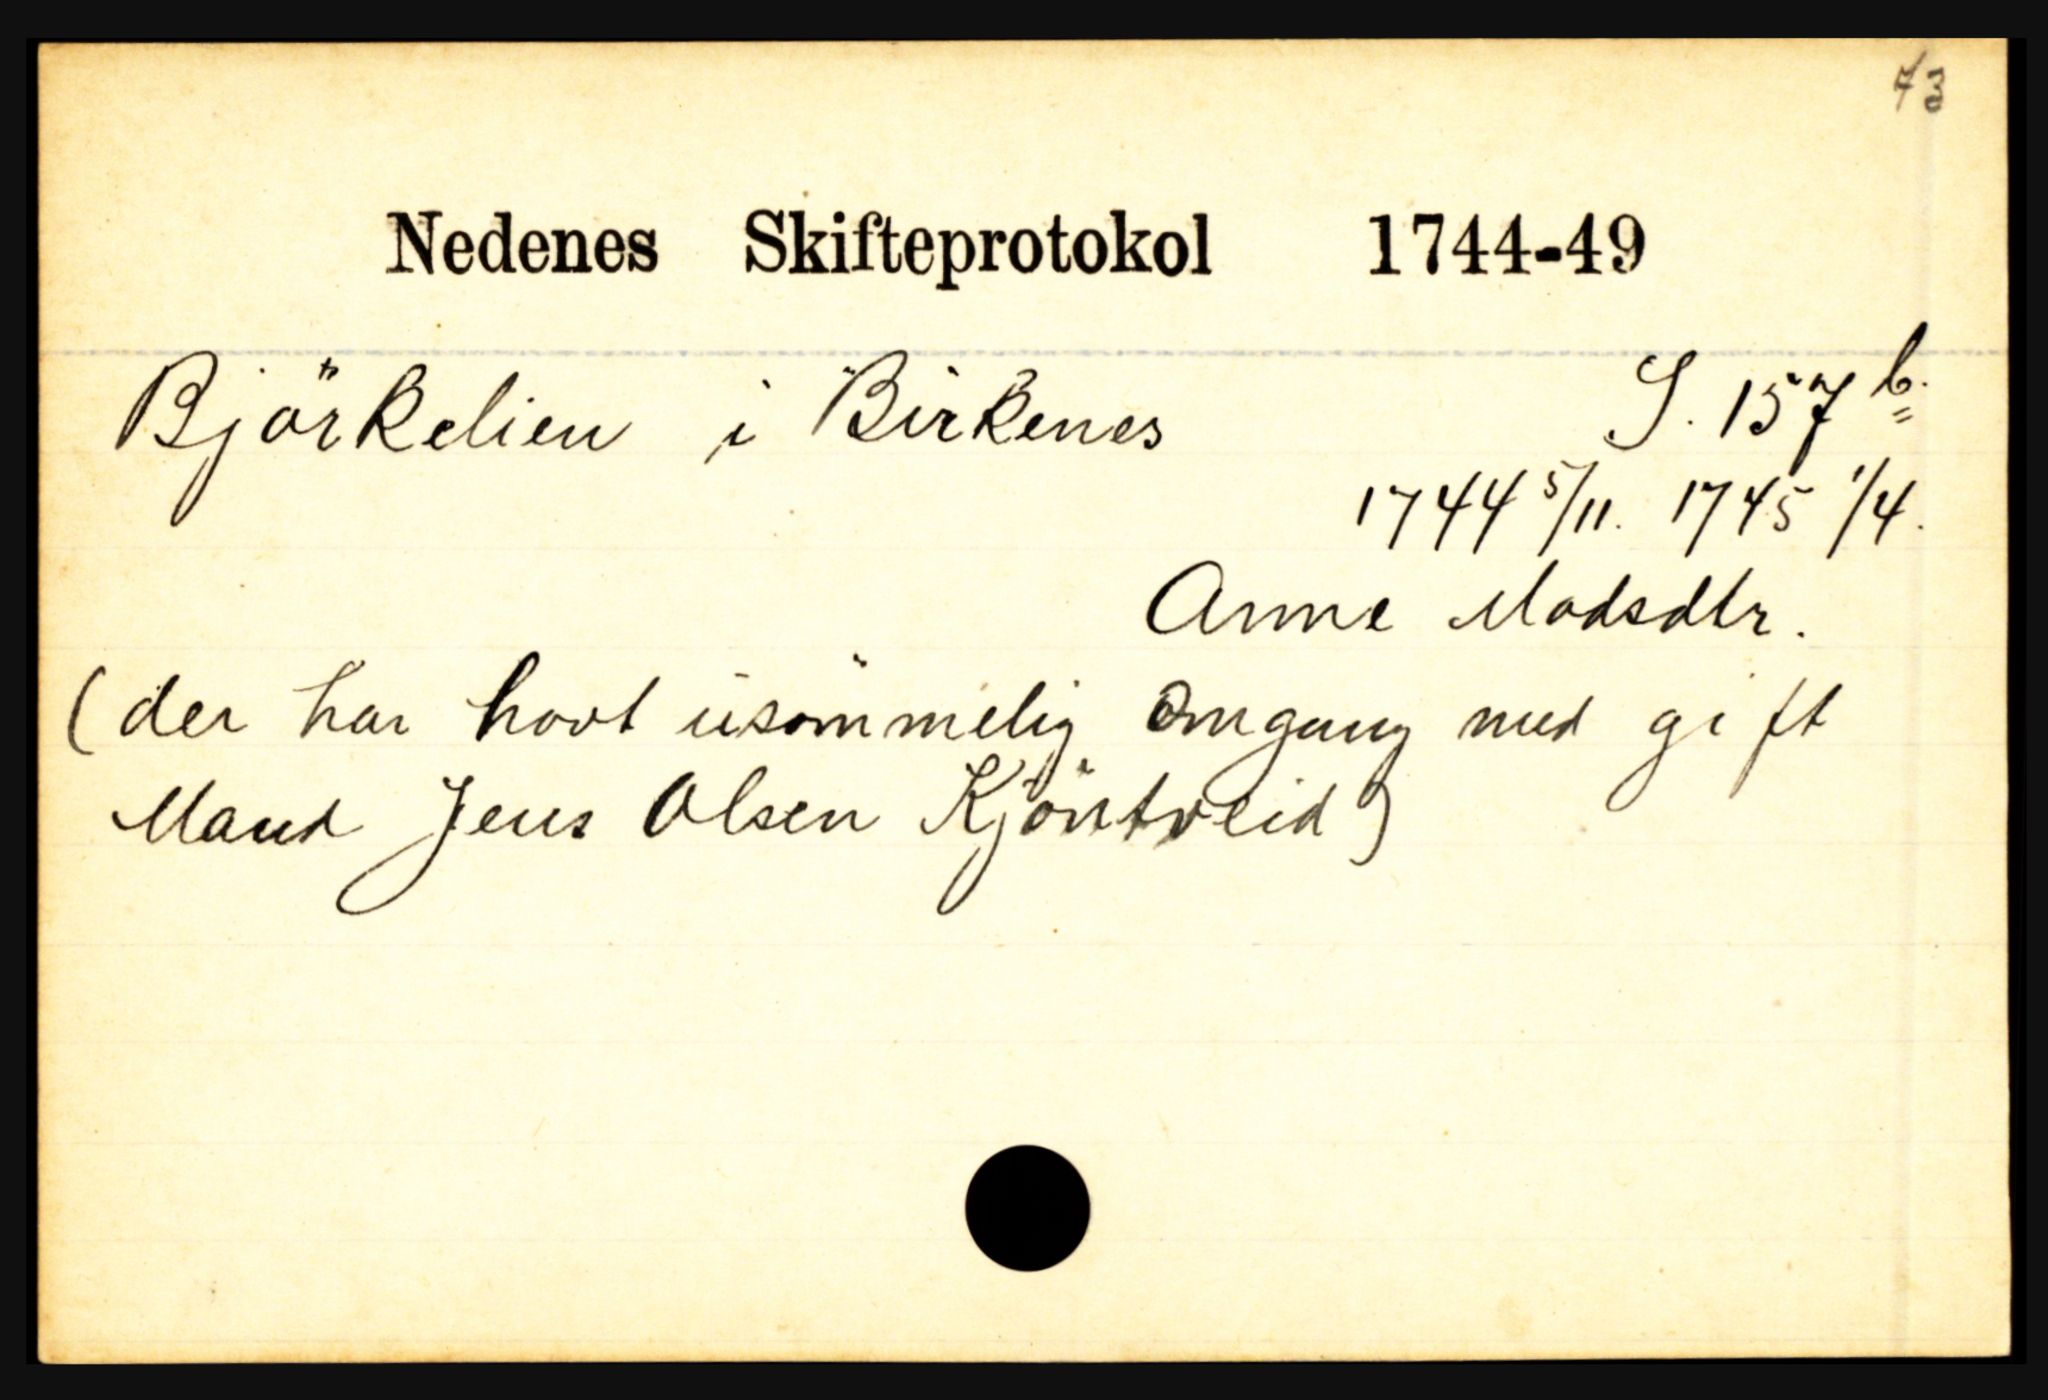 Nedenes Skifteprotokol 1744-49
Björkelien i Birkenes S. 157 b.
1744 5/11. 1745 1/4.
Anne Madsdtr.
(der har havt usömmelig Omgang med gift
Mand Jens Olsen Kjöstveid)